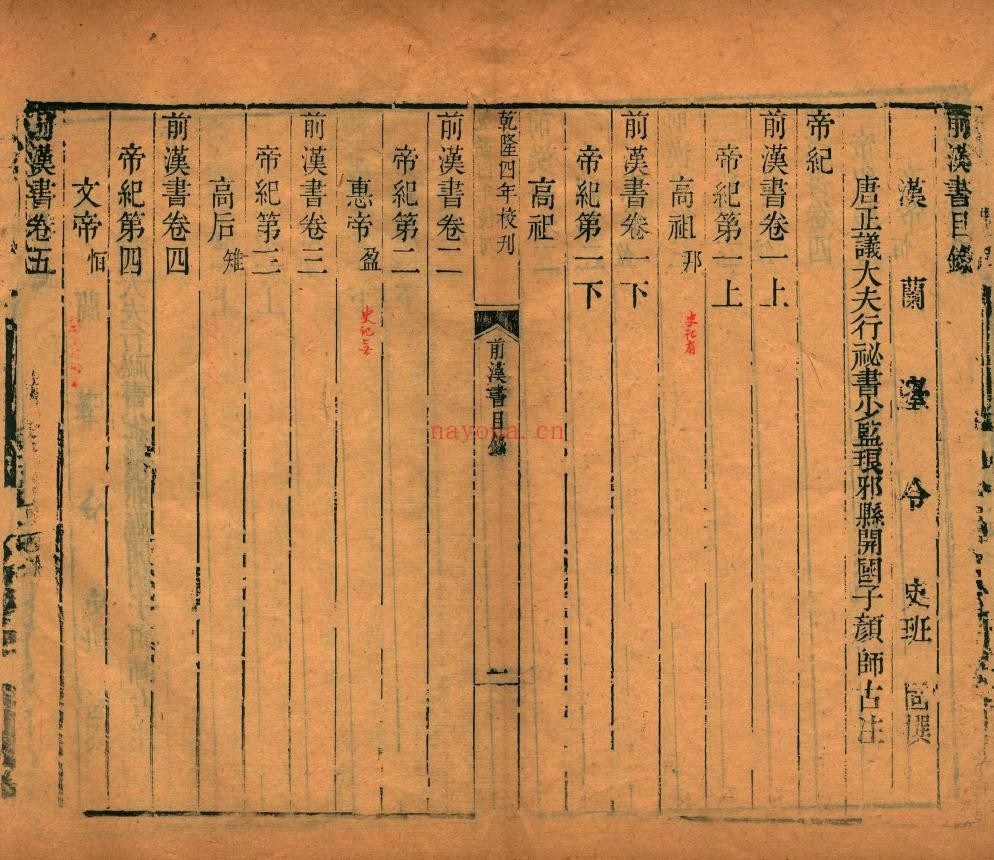 前漢書目錄
漢蘭臺令史班固撰
唐正議大夫行祕書少監琅邪縣開國子顏師古注
帝紀
前漢書卷一上
帝紀第一上
高祖邦
史記有
前漢書卷一下
帝紀第一下
高祖
乾隆四年校刊
前漢書目錄
一
前漢書卷二
帝紀第二
惠帝盈
史記无
前漢書卷三
帝紀第三
高后雉
前漢書卷四
帝紀第四
文帝恒
前漢書卷五
nayona.cn